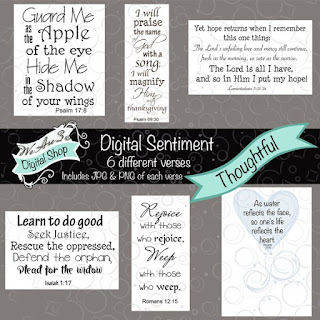 Guard Me
as the Apple
of the eye
Hide Me
in the Shadow
of your wings
Psalm 17:8
I will
praise
the name
of God
with a
song;
I will
magnify
Him
with
thanksgiving
Psalm 69:30
Yet hope returns when I remember
this one thing:
The Lord's unfailing love and mercy still continue,
fresh as the morning, as sure as the sunrise.
The Lord is all I have,
and so in Him I put my hope!
We Are 3
Digital Shop
Digital Sentiment
6 different verses
Includes JPG & PNG of each verse
Thoughtful
Learn to do good
Seek Justice,
Rescue the oppressed,
Defend the orphan,
Plead for the widow
Isaiah 1:17
Rejoice
with those
who rejoice,
Weep
with those
who weep.
Romans 12:15
As water
reflects the
face, so
one's life
reflects
the heart.